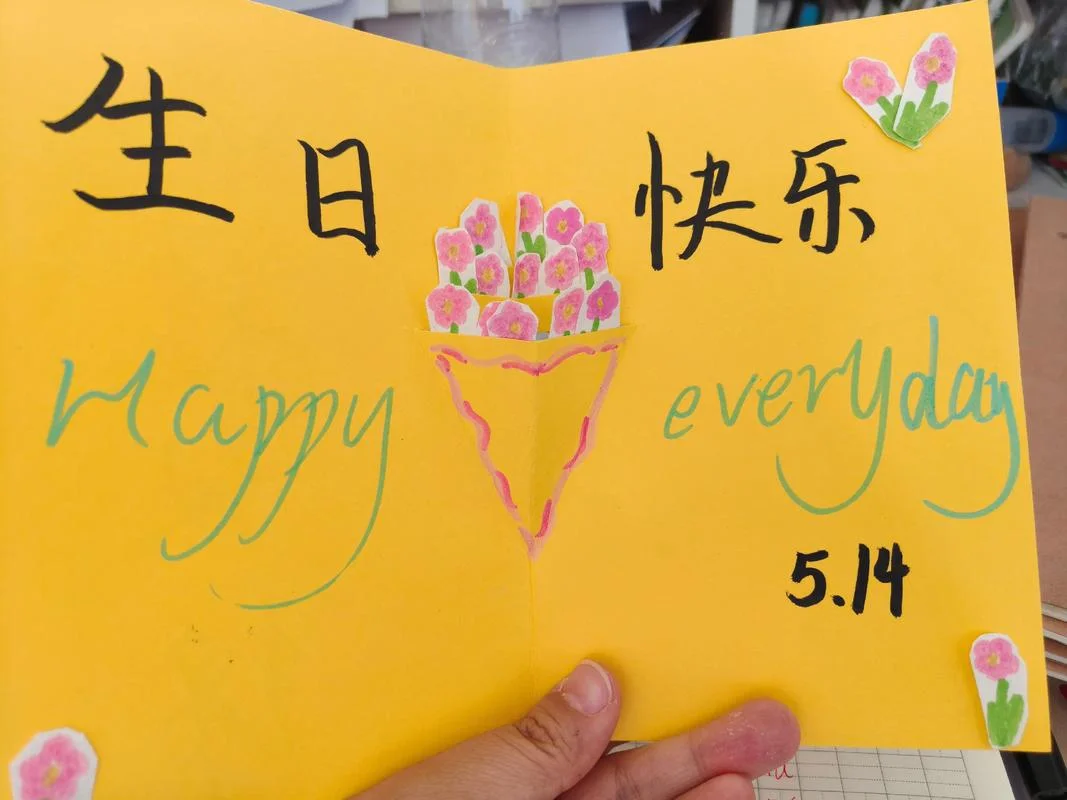 生日快乐
Happy everyday
5.14